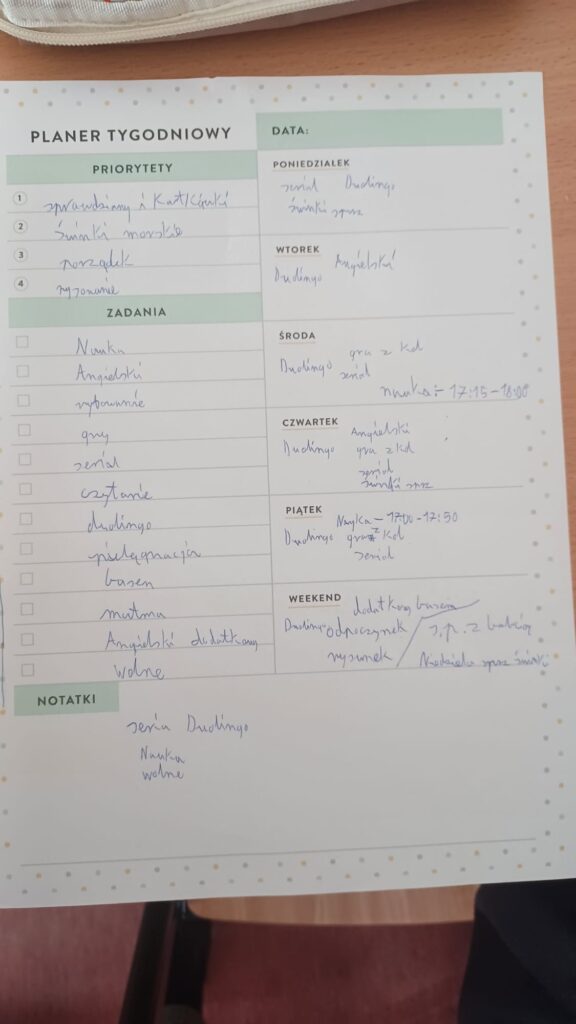 PLANER TYGODNIOWY
DATA:
PRIORYTETY
1 sprawdziany i kartkówki
2 świnki morskie
3 porządek
4 rysowanie
ZADANIA
Nauka
Angielski
rysowanie
gry
serial
czytanie
duolingo
pielęgnacja
basen
Angielski dodatkowy
wolne
PONIEDZIAŁEK
serial Duolingo
świnki sprz
WTOREK
Angielski
Duolingo
ŚRODA
gra z Kd
Duolingo
serial
nauka - 17:15 - 18:00
CZWARTEK
Angielski
Duolingo gra z kd
serial
świnki sprz
PIĄTEK
Nauka - 17:00 - 17:50
Duolingo gra z Kd
serial
WEEKEND
dodatkowy basen
Duolingo odpoczynek s.p. z babcią
rysunek Niedziela sprz świnki
NOTATKI
seria Duolingo
Nauka
wolne